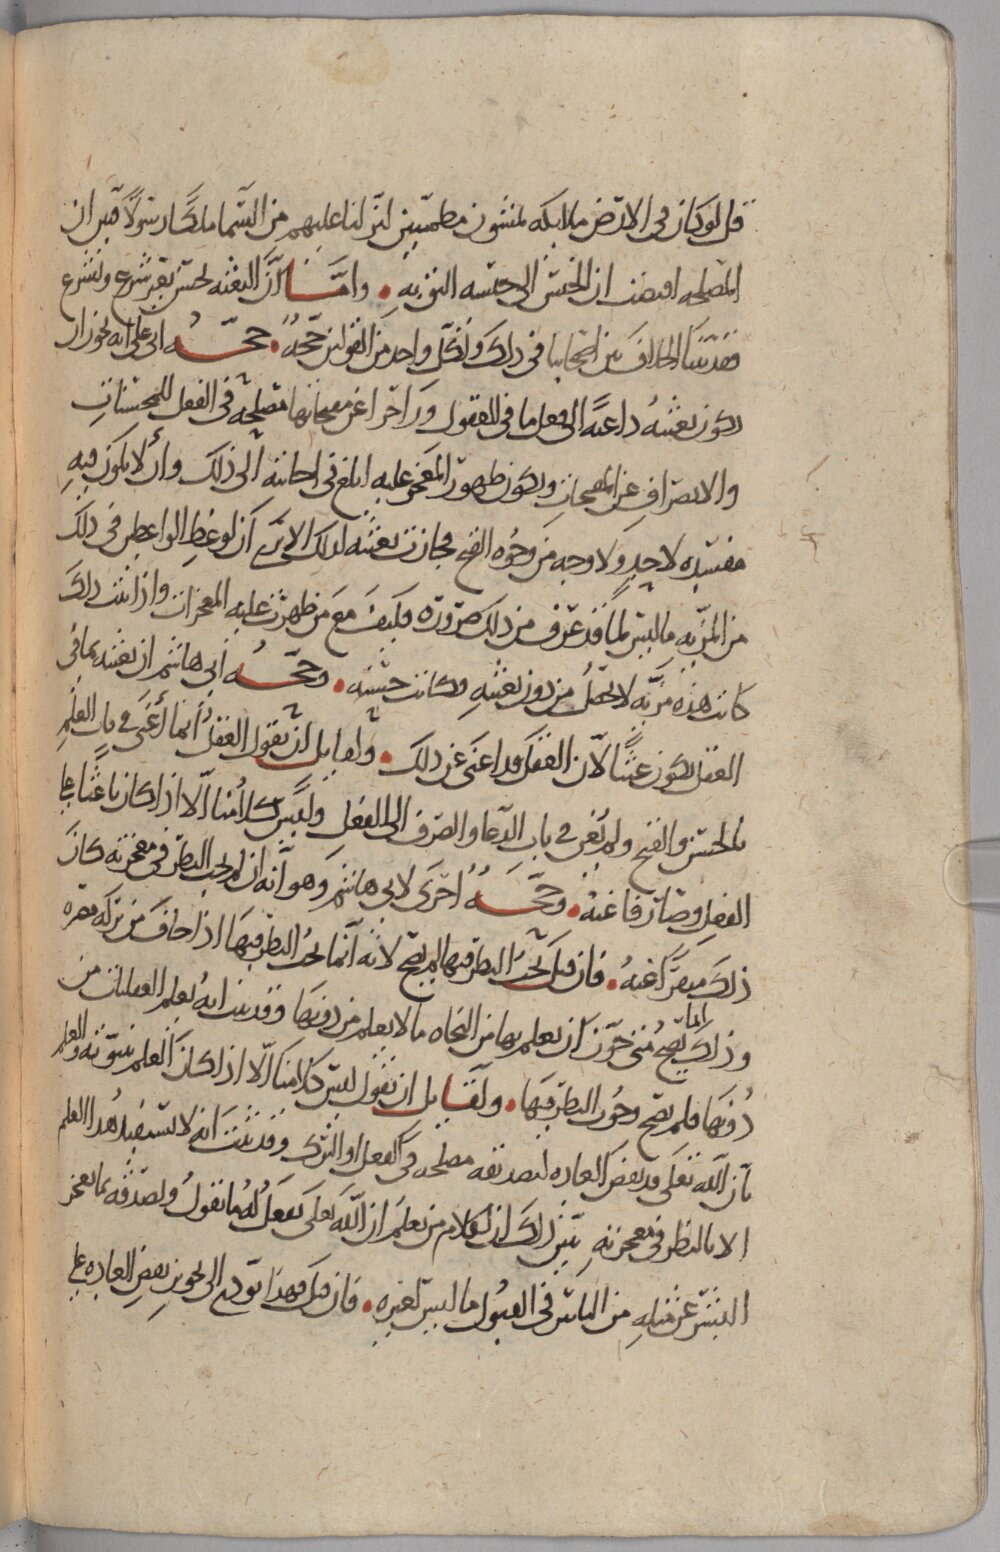 قل لو كان في الارض ملائكه يمشون مطمئنين لنزلنا عليهم من السما ملكا رسولا فبين ان
المصلحه اقتضت ان الجنس الى جنسه اقرب به • واما ان البعثه تحسن بغير شرع وبشرع
فقد بينا الخلاف بين اصحابنا في ذلك ولكل واحد من القولين حجة • حجه ابي علي انه يجوز ان
يكون بعثته داعية الى فعل ما في العقول وزاجرا عن مقبحاتها مصلحه في الفعل للمحسنات
والانصراف عن المقبحات ويكون ظهور المعجز عليه ابلغ في اجابته الى ذلك وان لا يكون فيه
مفسده لاحد ولا وجه من وجوه القبح فجازت بعثته لذلك الا ترى ان لوعظ الواعظين في ذلك
من المزيه ما ليس لما قد عرف من ذلك ضرورة فكيف مع من ظهرت عليه المعجزات واذا ثبت ذلك
كانت هذه مزيه لا تحصل من دون بعثته وكانت حسنه • وحجه ابي هاشم ان بعثته بما في
العقل يكون عبثا لان العقل قد اغنى عن ذلك • ولقايل ان يقول العقل انما اغنى في باب العلم
بالحسن والقبح ولم يغن في باب الدعا والصرف الى الفعل وليس كلامنا الا اذا كان باعثا على
الفعل وصارفا عنه • وحجة اخرى لابي هاشم وهو انه ان لم يجب النظر في معجزته كان
ذلك منفرا عنه • فان قيل يجب النظر فيها لم يصح لانه انما يجب النظر فيها اذا خاف من تركه مضره
وذلك انما يصح متى جوز ان يعلم بها من النجاه ما لا يعلم من دونها وقد بينا انه يعلم العقليات من
دونها فلم يصح وجوب النظر فيها • ولقايل ان يقول ليس كلامنا الا اذا كان العلم بنبوته والعلم
بان الله تعالى قد نقض العاده لتصديقه مصلحه في الفعل او الترك وقد ثبت انه لا يستفيد هذا العلم
الا بالنظر في معجزته يبين ذلك ان لكلام من يعلم ان الله تعالى يفعل له ما يقول ويصدقه بما يعجز
البشر عن مثله من التاثير في القبول ما ليس لغيره • فان قيل فهذا يودي الى تجويز نقض العاده على